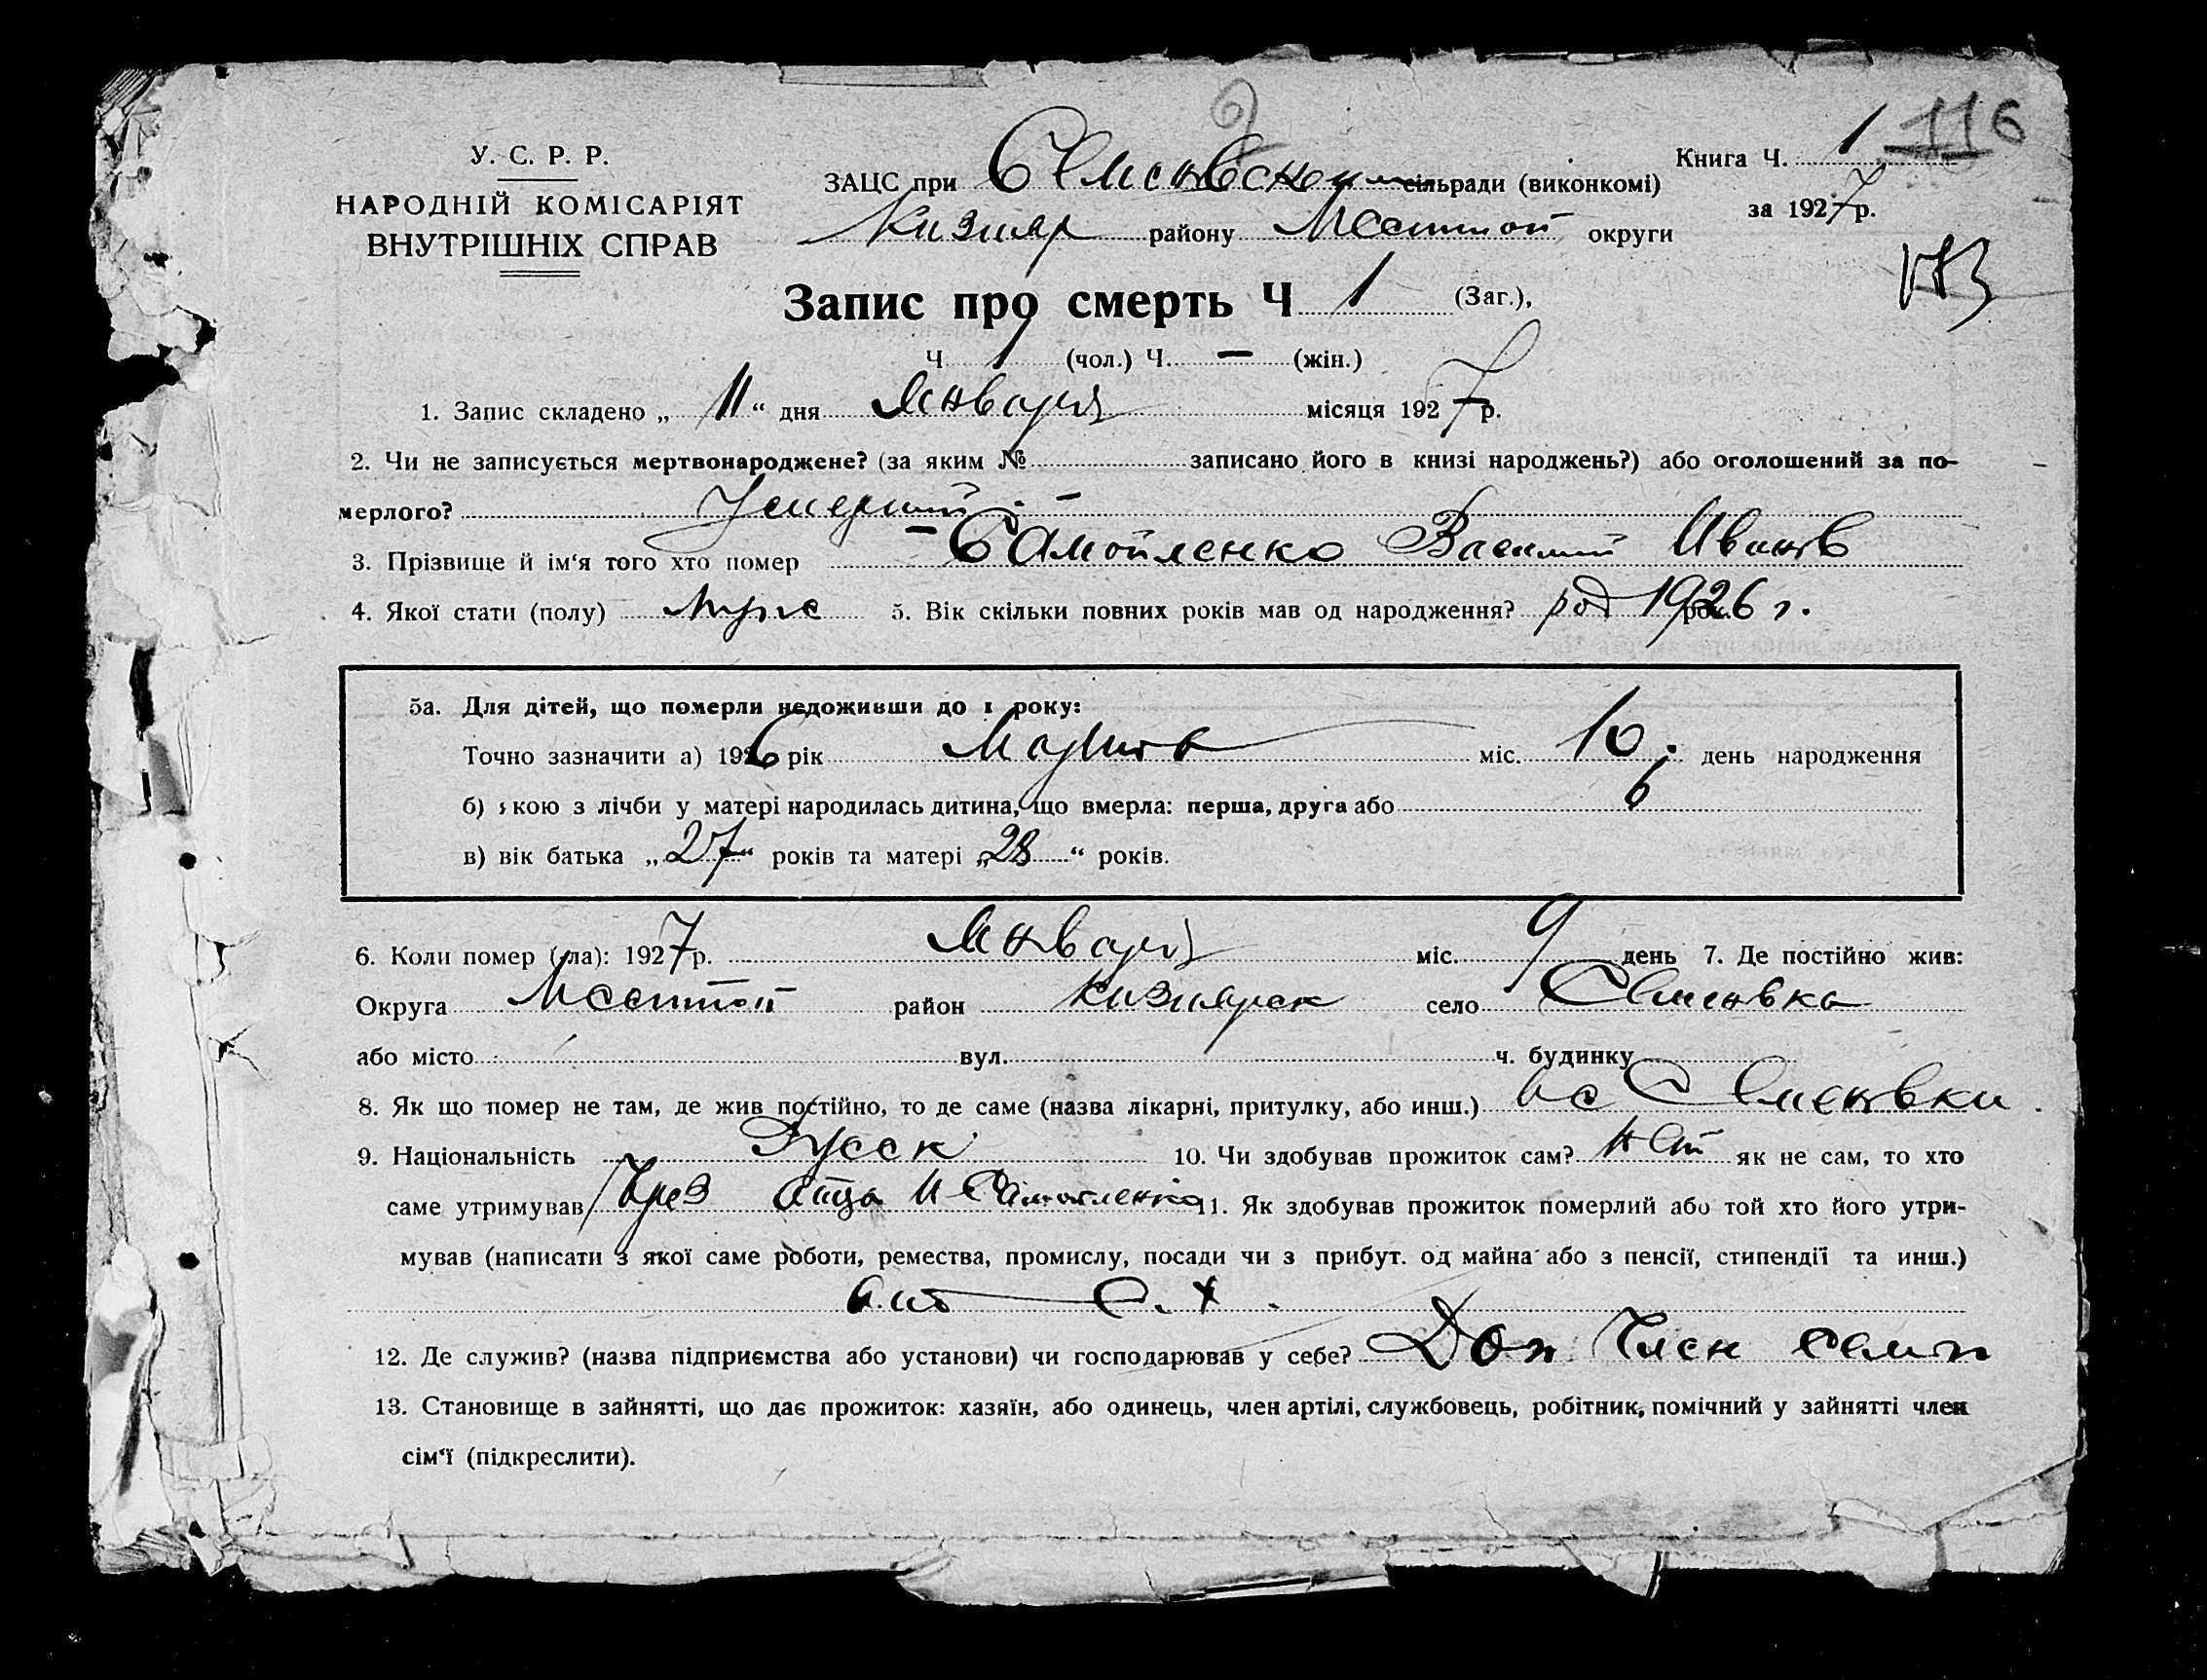 116
У. С. Р. Р.
НАРОДНІЙ КОМІСАРІЯТ
ВНУТРІШНІХ СПРАВ
ЗАЦС при Семеновском сільради (виконкомі)
Кизияр району М округи
Книга Ч. 1
за 1927 р.
Запис про смерть Ч 1 (Заг.),
Ч 1 (чол.) Ч. — (жін.)
1. Запис складено „ 11 “ дня Января місяця 1927 р.
2. Чи не записується мертвонароджене? (за яким № записано його в книзі народжень?) або оголошений за по-
мерлого? Умерший . —
3. Прізвище й ім‘я того хто помер — Самойленко Василий Иванов
4. Якої стати (полу) муж 5. Вік скільки повних років мав од народження? род 1926 г.
5а. Для дітей, що померли недоживши до 1 року:
Точно зазначити а) 1926 рік Марта міс. 10 . день народження
б) якою з лічби у матері народилась дитина, що вмерла: перша, друга або 6
в) вік батька „ 27 “ років та матері „ 28 “ років.
6. Коли помер (ла): 1927 р. Января міс. 9 день 7. Де постійно жив:
Округа район Кизиярск село Семеновка
або місто вул. ч. будинку
8. Як що помер не там, де жив постійно, то де саме (назва лікарні, притулку, або инш.) в с Семеновки
9. Національність Русск 10. Чи здобував прожиток сам? нет як не сам, то хто
саме утримував Чрез отца И Самойленко 11. Як здобував прожиток померлий або той хто його утри-
мував (написати з якої саме роботи, ремества, промислу, посади чи з прибут. од майна або з пенсії, стипендії та инш.)
С. Х.
12. Де служив? (назва підприємства або установи) чи господарював у себе? член семи
13. Становище в зайнятті, що дає прожиток: хазяїн, або одинець, член артілі, службовець, робітник, помічний у зайнятті член
сім‘ї (підкреслити).